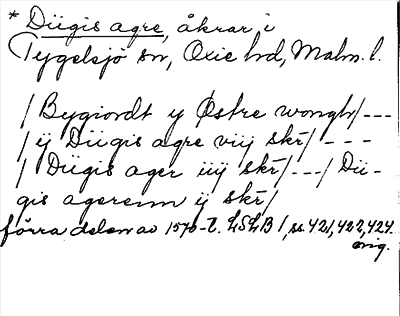 * Diigis agre, åkrar i
Tygelsjö sn, Oxie hd, Malm. l.
/ Bygiordt y Østre wongh/ ---
/ ij Diigis agre viij skr̄/ ---
/ Diigis ager iiij skr̄/ ---/ Dii-
gis agerenn ij skr̄/
förra delen av 1570-t. LSLB 1, ss 421, 422, 424.
orig.